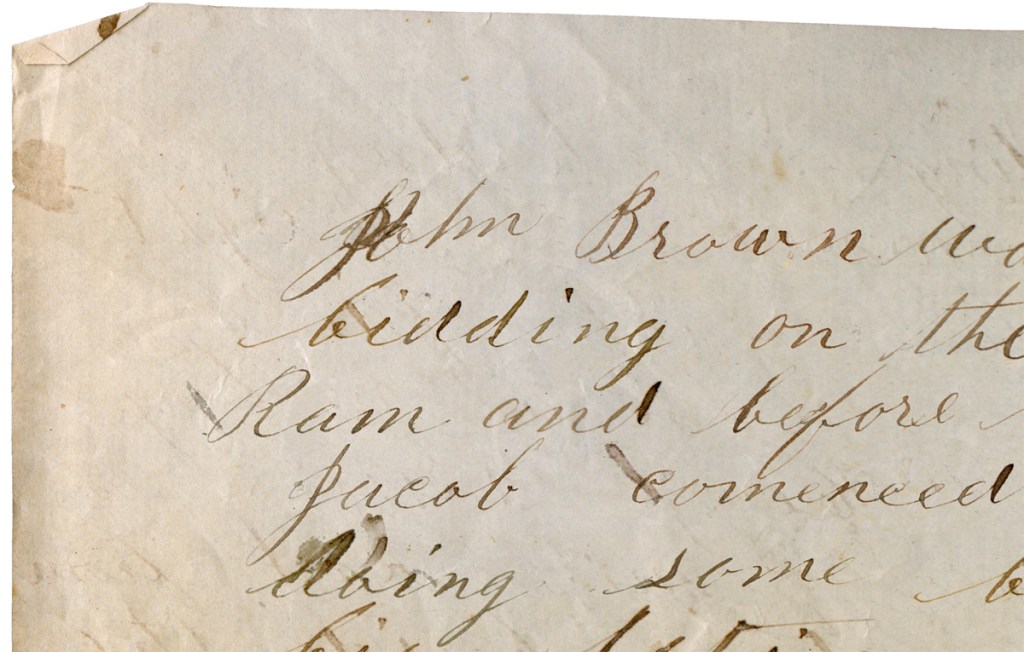 John Brown
bidding on the
Ram and before
Jacob comenced
doing some